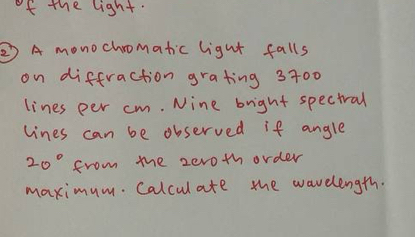 of the light.
② A monochromatic light falls
on diffraction grating 3700
lines per cm. Nine bright spectral
lines can be observed if angle
20° from the zeroth order
maximum. Calculate the wavelength.